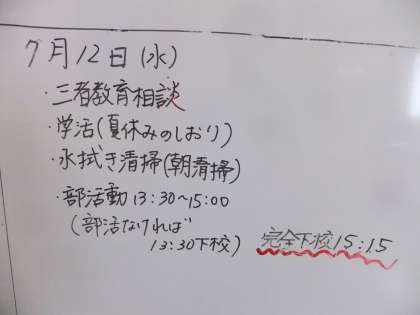 7月12日(水)
・三者教育相談
・学活(夏休みのしおり)
・水拭き清掃(朝清掃)
・部活動 13:30~15:00
(部活なければ
13:30下校)
完全下校15:15